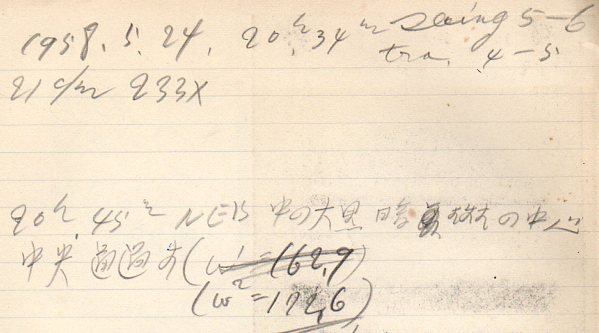 1958. 5. 24. 20h 34m Seeing 5-6
tra. 4-5
21 c/m 233X
20h 45m NEB 中の大黒暗の中心
中央通過す(ω¹=162,9)
(ω²=172,6)